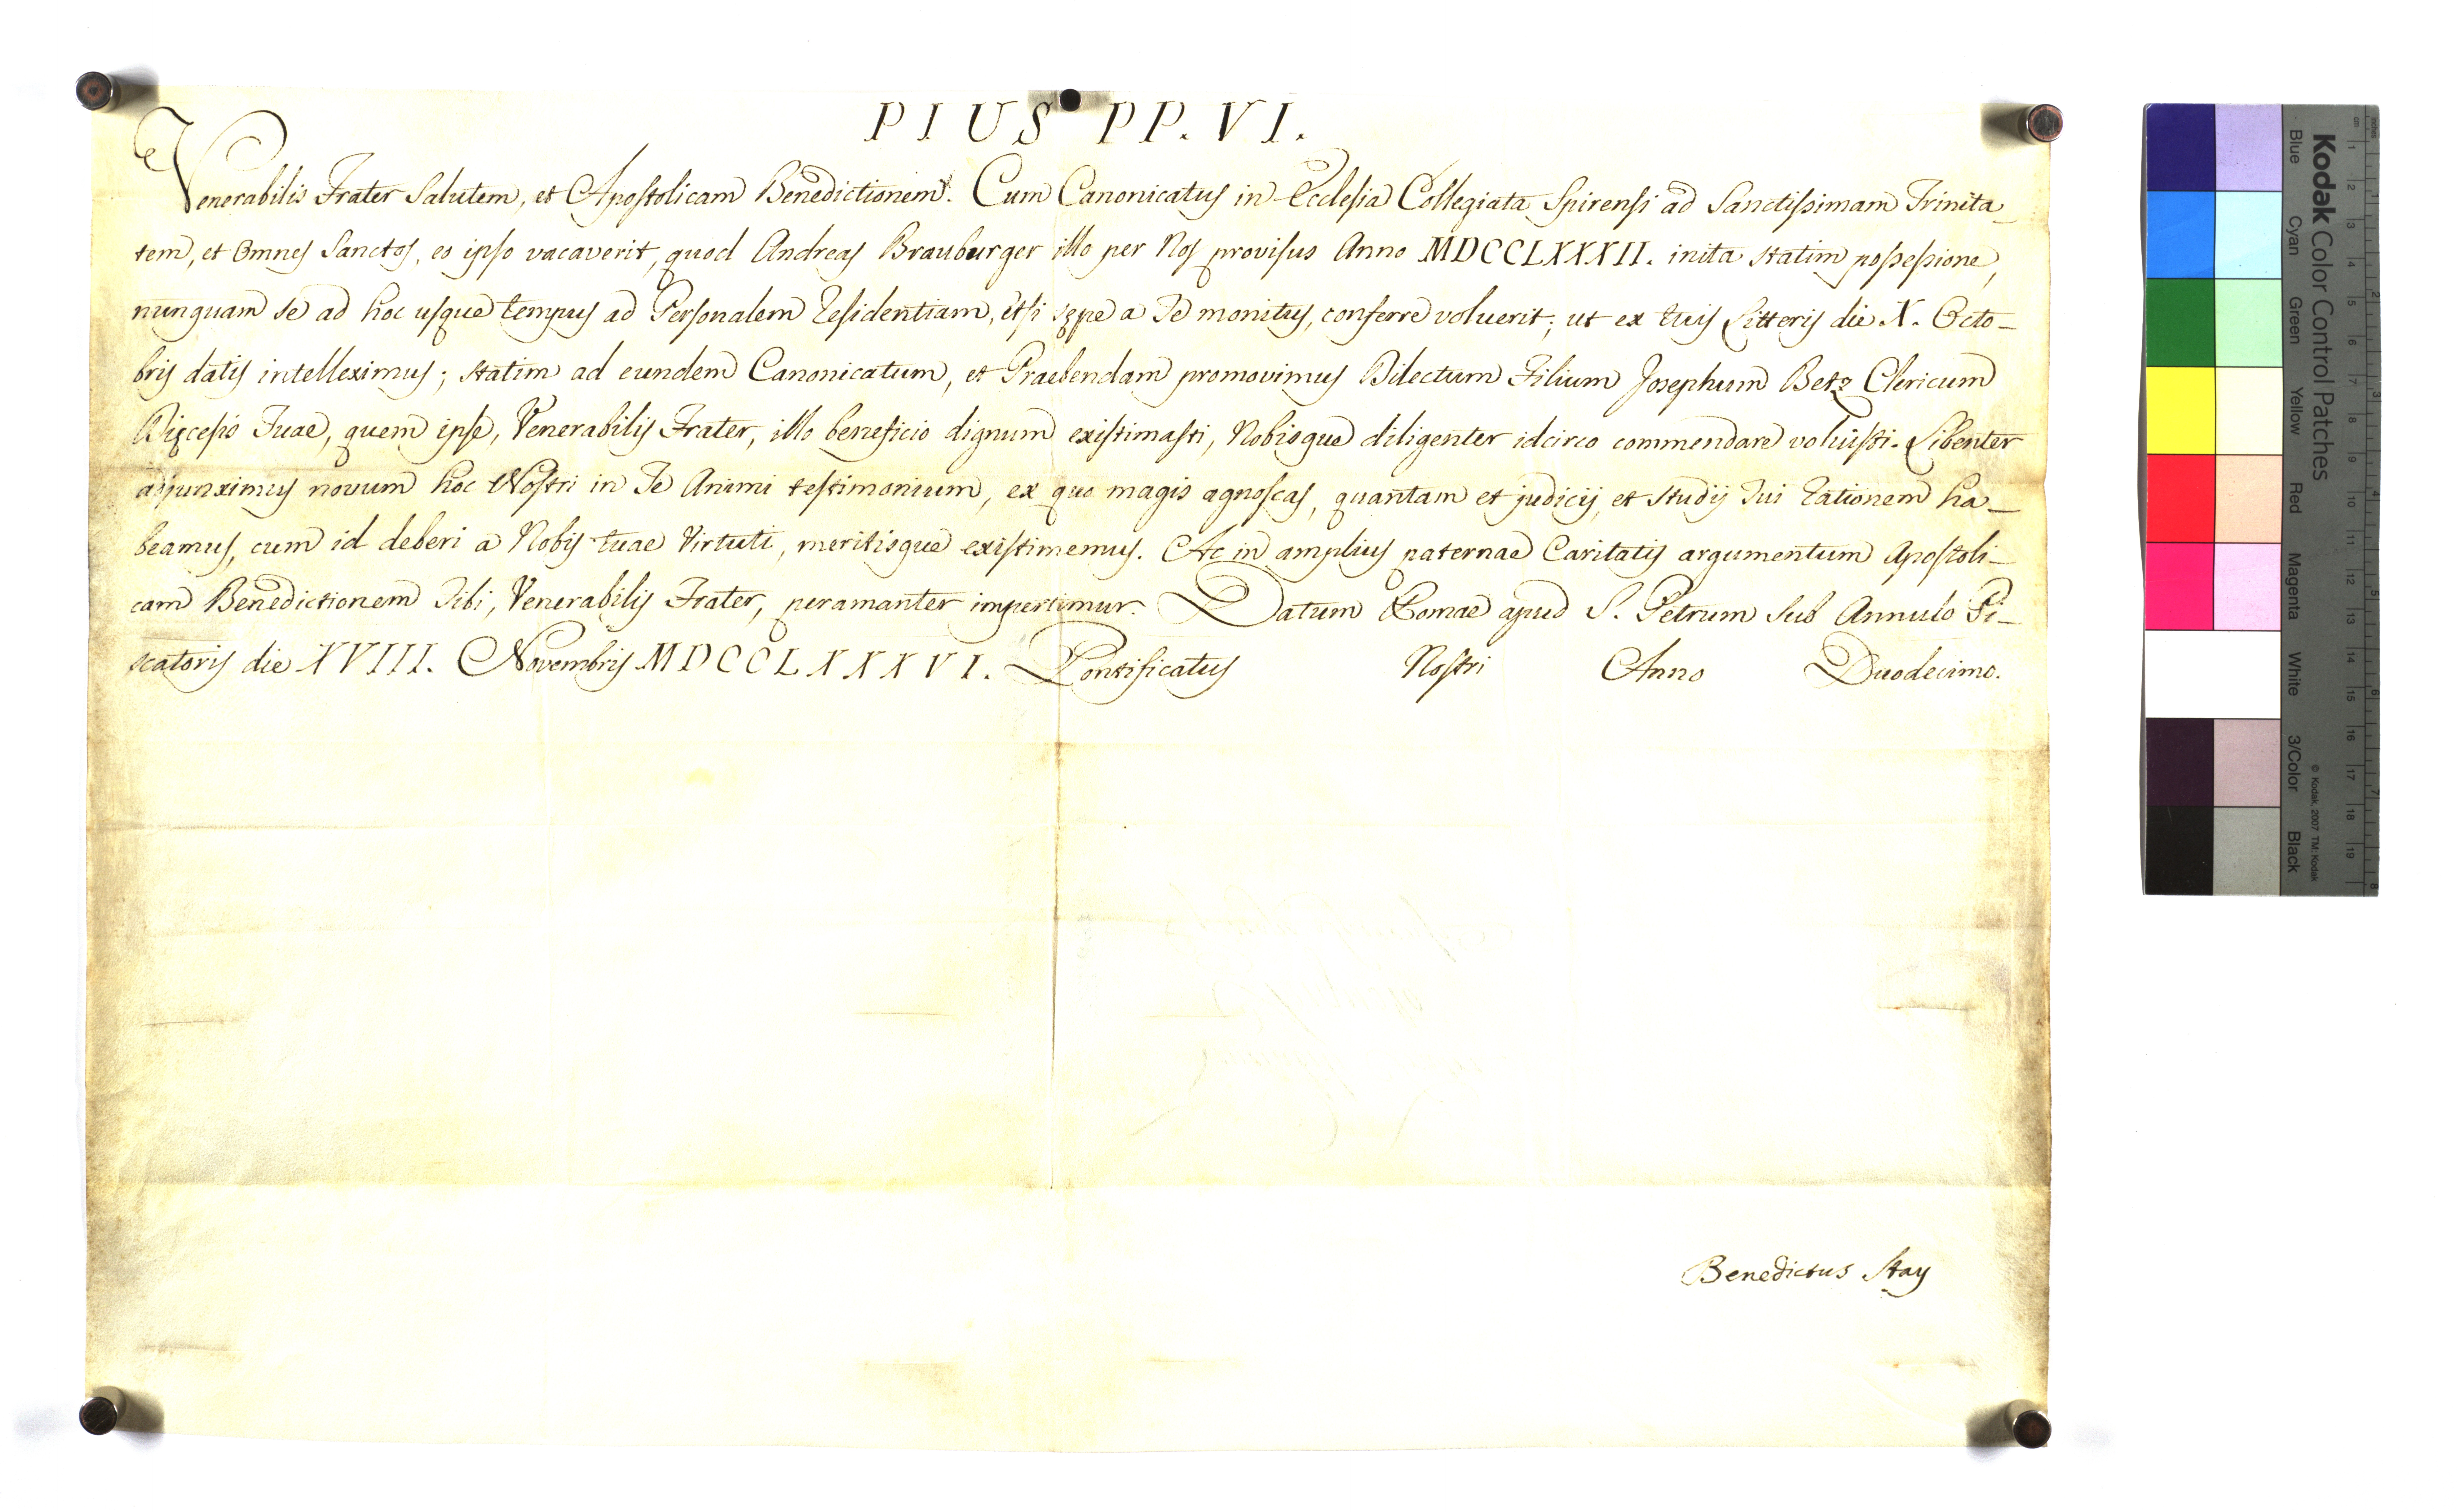 PIUS PP. VI.
Venerabilis Frater Salutem, et Apostolicam Benedictionem. Cum Canonicatus in Ecclesia Collegiata Spirensi ad Sanctissimam Trinita_
tem, et Omnes Sanctos, eo ipso vacaverit, quod Andreas Brauburger illo per Nos provisus Anno MDCCLXXXII. inita statim possessione,
nunquam se ad hoc usque tempus ad Personalem Residentiam, etsi sępe a Te monitus, conferre voluerit; ut ex tuis Litteris die X. Octo_
bris datis intelleximus; statim ad eundem Canonicatum, et Praebendam promovimus Dilectum Filium Josephum Betz Clericum
Dięcesis Tuae, quem ipse, Venerabilis Frater, illo beneficio dignum existimasti, Nobisque diligenter idcirco commendare voluisti. Libenter
adjunximus novum hoc Nostri in Te Animi testimonium, ex quo magis agnoscas, quantam et judicij, et studij Tui rationem ha_
beamus, cum id deberi a Nobis tuae Virtuti, meritisque existimemus. Ac in amplius paternae Caritatis argumentum Apostoli_
cam Benedictionem Tibi, Venerabilis Frater, peramanter impertimur. Datum Romae apud S. Petrum sub Annulo Pi_
scatoris die XVIII. Novembris MDCCLXXXVI. Pontificatus Nostri Anno Duodecimo.
Benedictus Stay
Kodak Color Control Patches
© Kodak, 2007 TM: Kodak
Blue Cyan Green Yellow Red Magenta White 3/Color Black
cm 1 2 3 4 5 6 7 8 9 10 11 12 13 14 15 16 17 18 19
inches 1 2 3 4 5 6 7 8